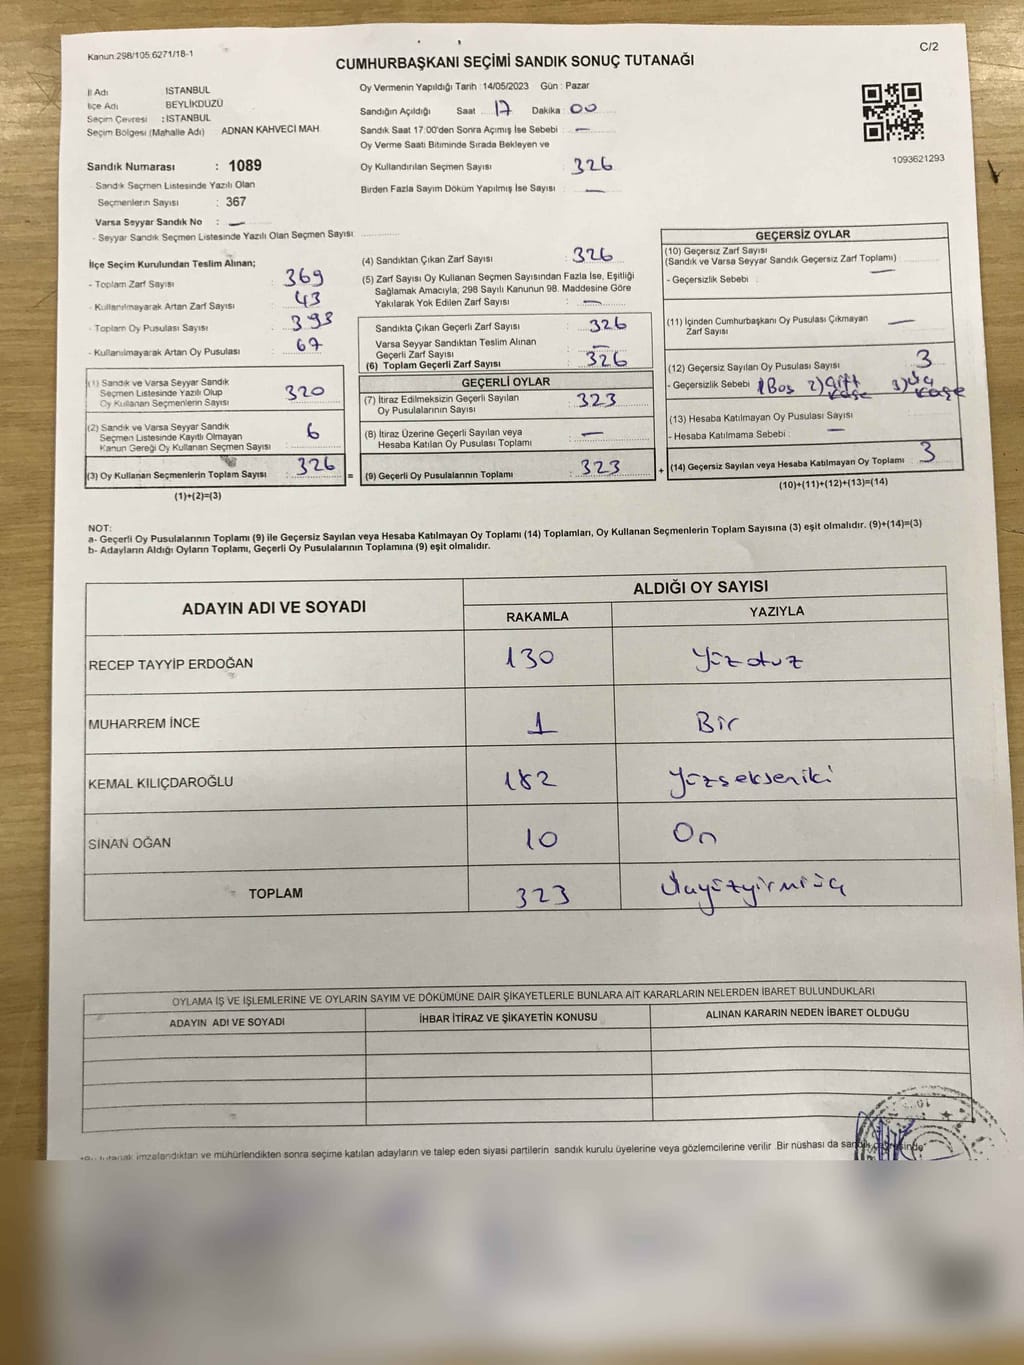 Kanun:298/105:6271/18-1
C/2
CUMHURBAŞKANI SEÇİMİ SANDIK SONUÇ TUTANAĞI
İl Adı İSTANBUL
İlçe Adı BEYLİKDÜZÜ
Seçim Çevresi : İSTANBUL
Seçim Bölgesi (Mahalle Adı) ADNAN KAHVECİ MAH
Sandık Numarası : 1089
- Sandık Seçmen Listesinde Yazılı Olan
Seçmenlerin Sayısı : 367
Varsa Seyyar Sandık No : —
- Seyyar Sandık Seçmen Listesinde Yazılı Olan Seçmen Sayısı
Oy Vermenin Yapıldığı Tarih : 14/05/2023 Gün : Pazar
Sandığın Açıldığı Saat 17 Dakika : 00
Sandık Saat 17:00'den Sonra Açımış İse Sebebi : —
Oy Verme Saati Bitiminde Sırada Bekleyen ve
Oy Kullandırılan Seçmen Sayısı 326
Birden Fazla Sayım Döküm Yapılmış İse Sayısı : —
1093621293
İlçe Seçim Kurulundan Teslim Alınan;
- Toplam Zarf Sayısı : 369
- Kullanılmayarak Artan Zarf Sayısı : 43
- Toplam Oy Pusulası Sayısı : 393
- Kullanılmayarak Artan Oy Pusulası : 67
(1) Sandık ve Varsa Seyyar Sandık
Seçmen Listesinde Yazılı Olup
Oy Kullanan Seçmenlerin Sayısı : 320
(2) Sandık ve Varsa Seyyar Sandık
Seçmen Listesinde Kayıtlı Olmayan
Kanun Gereği Oy Kullanan Seçmen Sayısı : 6
(3) Oy Kullanan Seçmenlerin Toplam Sayısı : 326
(1)+(2)=(3)
(4) Sandıktan Çıkan Zarf Sayısı : 326
(5) Zarf Sayısı Oy Kullanan Seçmen Sayısından Fazla İse, Eşitliği
Sağlamak Amacıyla; 298 Sayılı Kanunun 98. Maddesine Göre
Yakılarak Yok Edilen Zarf Sayısı : —
Sandıkta Çıkan Geçerli Zarf Sayısı : 326
Varsa Seyyar Sandıktan Teslim Alınan
Geçerli Zarf Sayısı : —
(6) Toplam Geçerli Zarf Sayısı : 326
GEÇERLİ OYLAR
(7) İtiraz Edilmeksizin Geçerli Sayılan
Oy Pusulalarının Sayısı : 323
(8) İtiraz Üzerine Geçerli Sayılan veya
Hesaba Katılan Oy Pusulası Toplamı : —
= (9) Geçerli Oy Pusulalarının Toplamı : 323
GEÇERSİZ OYLAR
(10) Geçersiz Zarf Sayısı
(Sandık ve Varsa Seyyar Sandık Geçersiz Zarf Toplamı) —
- Geçersizlik Sebebi :
(11) İçinden Cumhurbaşkanı Oy Pusulası Çıkmayan
Zarf Sayısı —
(12) Geçersiz Sayılan Oy Pusulası Sayısı 3
- Geçersizlik Sebebi 1)Boş 2)çift kaşe 3)üç kaşe
(13) Hesaba Katılmayan Oy Pusulası Sayısı
- Hesaba Katılmama Sebebi : —
+ (14) Geçersiz Sayılan veya Hesaba Katılmayan Oy Toplamı 3
(10)+(11)+(12)+(13)=(14)
NOT:
a- Geçerli Oy Pusulalarının Toplamı (9) ile Geçersiz Sayılan veya Hesaba Katılmayan Oy Toplamı (14) Toplamları, Oy Kullanan Seçmenlerin Toplam Sayısına (3) eşit olmalıdır. (9)+(14)=(3)
b- Adayların Aldığı Oyların Toplamı, Geçerli Oy Pusulalarının Toplamına (9) eşit olmalıdır.
ADAYIN ADI VE SOYADI
ALDIĞI OY SAYISI
RAKAMLA YAZIYLA
RECEP TAYYİP ERDOĞAN 130 Yüzotuz
MUHARREM İNCE 1 Bir
KEMAL KILIÇDAROĞLU 182 Yüzsekseniki
SİNAN OĞAN 10 On
TOPLAM 323 Üçyüzyirmiüç
OYLAMA İŞ VE İŞLEMLERİNE VE OYLARIN SAYIM VE DÖKÜMÜNE DAİR ŞİKAYETLERLE BUNLARA AİT KARARLARIN NELERDEN İBARET BULUNDUKLARI
ADAYIN ADI VE SOYADI İHBAR İTİRAZ VE ŞİKAYETİN KONUSU ALINAN KARARIN NEDEN İBARET OLDUĞU
tutanak imzalandıktan ve mühürlendikten sonra seçime katılan adayların ve talep eden siyasi partilerin sandık kurulu üyelerine veya gözlemcilerine verilir Bir nüshası da